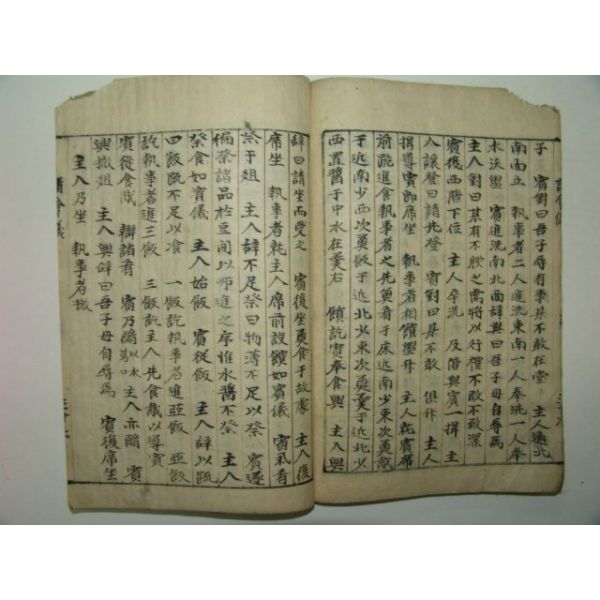 子 賓對曰吾子辱有事某不敢在堂 主人適北
南面立 執事者二人進洗東南一人奉洗一人奉
水沃盥 賓進洗南北面辭興曰吾子毋自辱焉
主人對曰某有不腆之需將以行禮不敢不致潔
賓復西階下位 主人卒洗 及階與賓一揖 主
人讓登曰請先登 賓對曰某不敢 俱升 主人
揖導賓即席 執事者相饋盥升 主人乾賓席
前跪進食執事者之先奠肴于床近南少東次奠飯
于近南少西次奠飯于近北少東次奠羹于近北少
西置醬于中水在羹右 饋訖賓奉食興 主人興
辭曰請坐而受之 賓復坐奠食于故處 主人復
席坐 執事者乾主人席前設饌如賓儀 賓氣肴
祭于俎 主人辭不足祭曰物薄不足以祭 賓遂
徧祭諸品於豆間以所進之序惟水醬不祭 主人
祭食如賓儀 主人始飯 賓從飯 主人辭以疏
曰飯疏不足以飡 一飯訖執事者進亞飯 亞飯
訖執事者進三飯 三飯訖主人先食胾以導賓
賓從食胾 辯諸肴 賓乃酳以水 主人亦酳 賓
興撤俎 主人興辭曰吾子毋自辱焉 賓復席坐
主人乃坐 執事者撤
儀